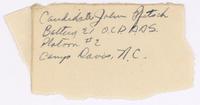 Candidate John
Battery 21 O.C.D. A.A.S.
Platoon #2
Camp Davis, N.C.